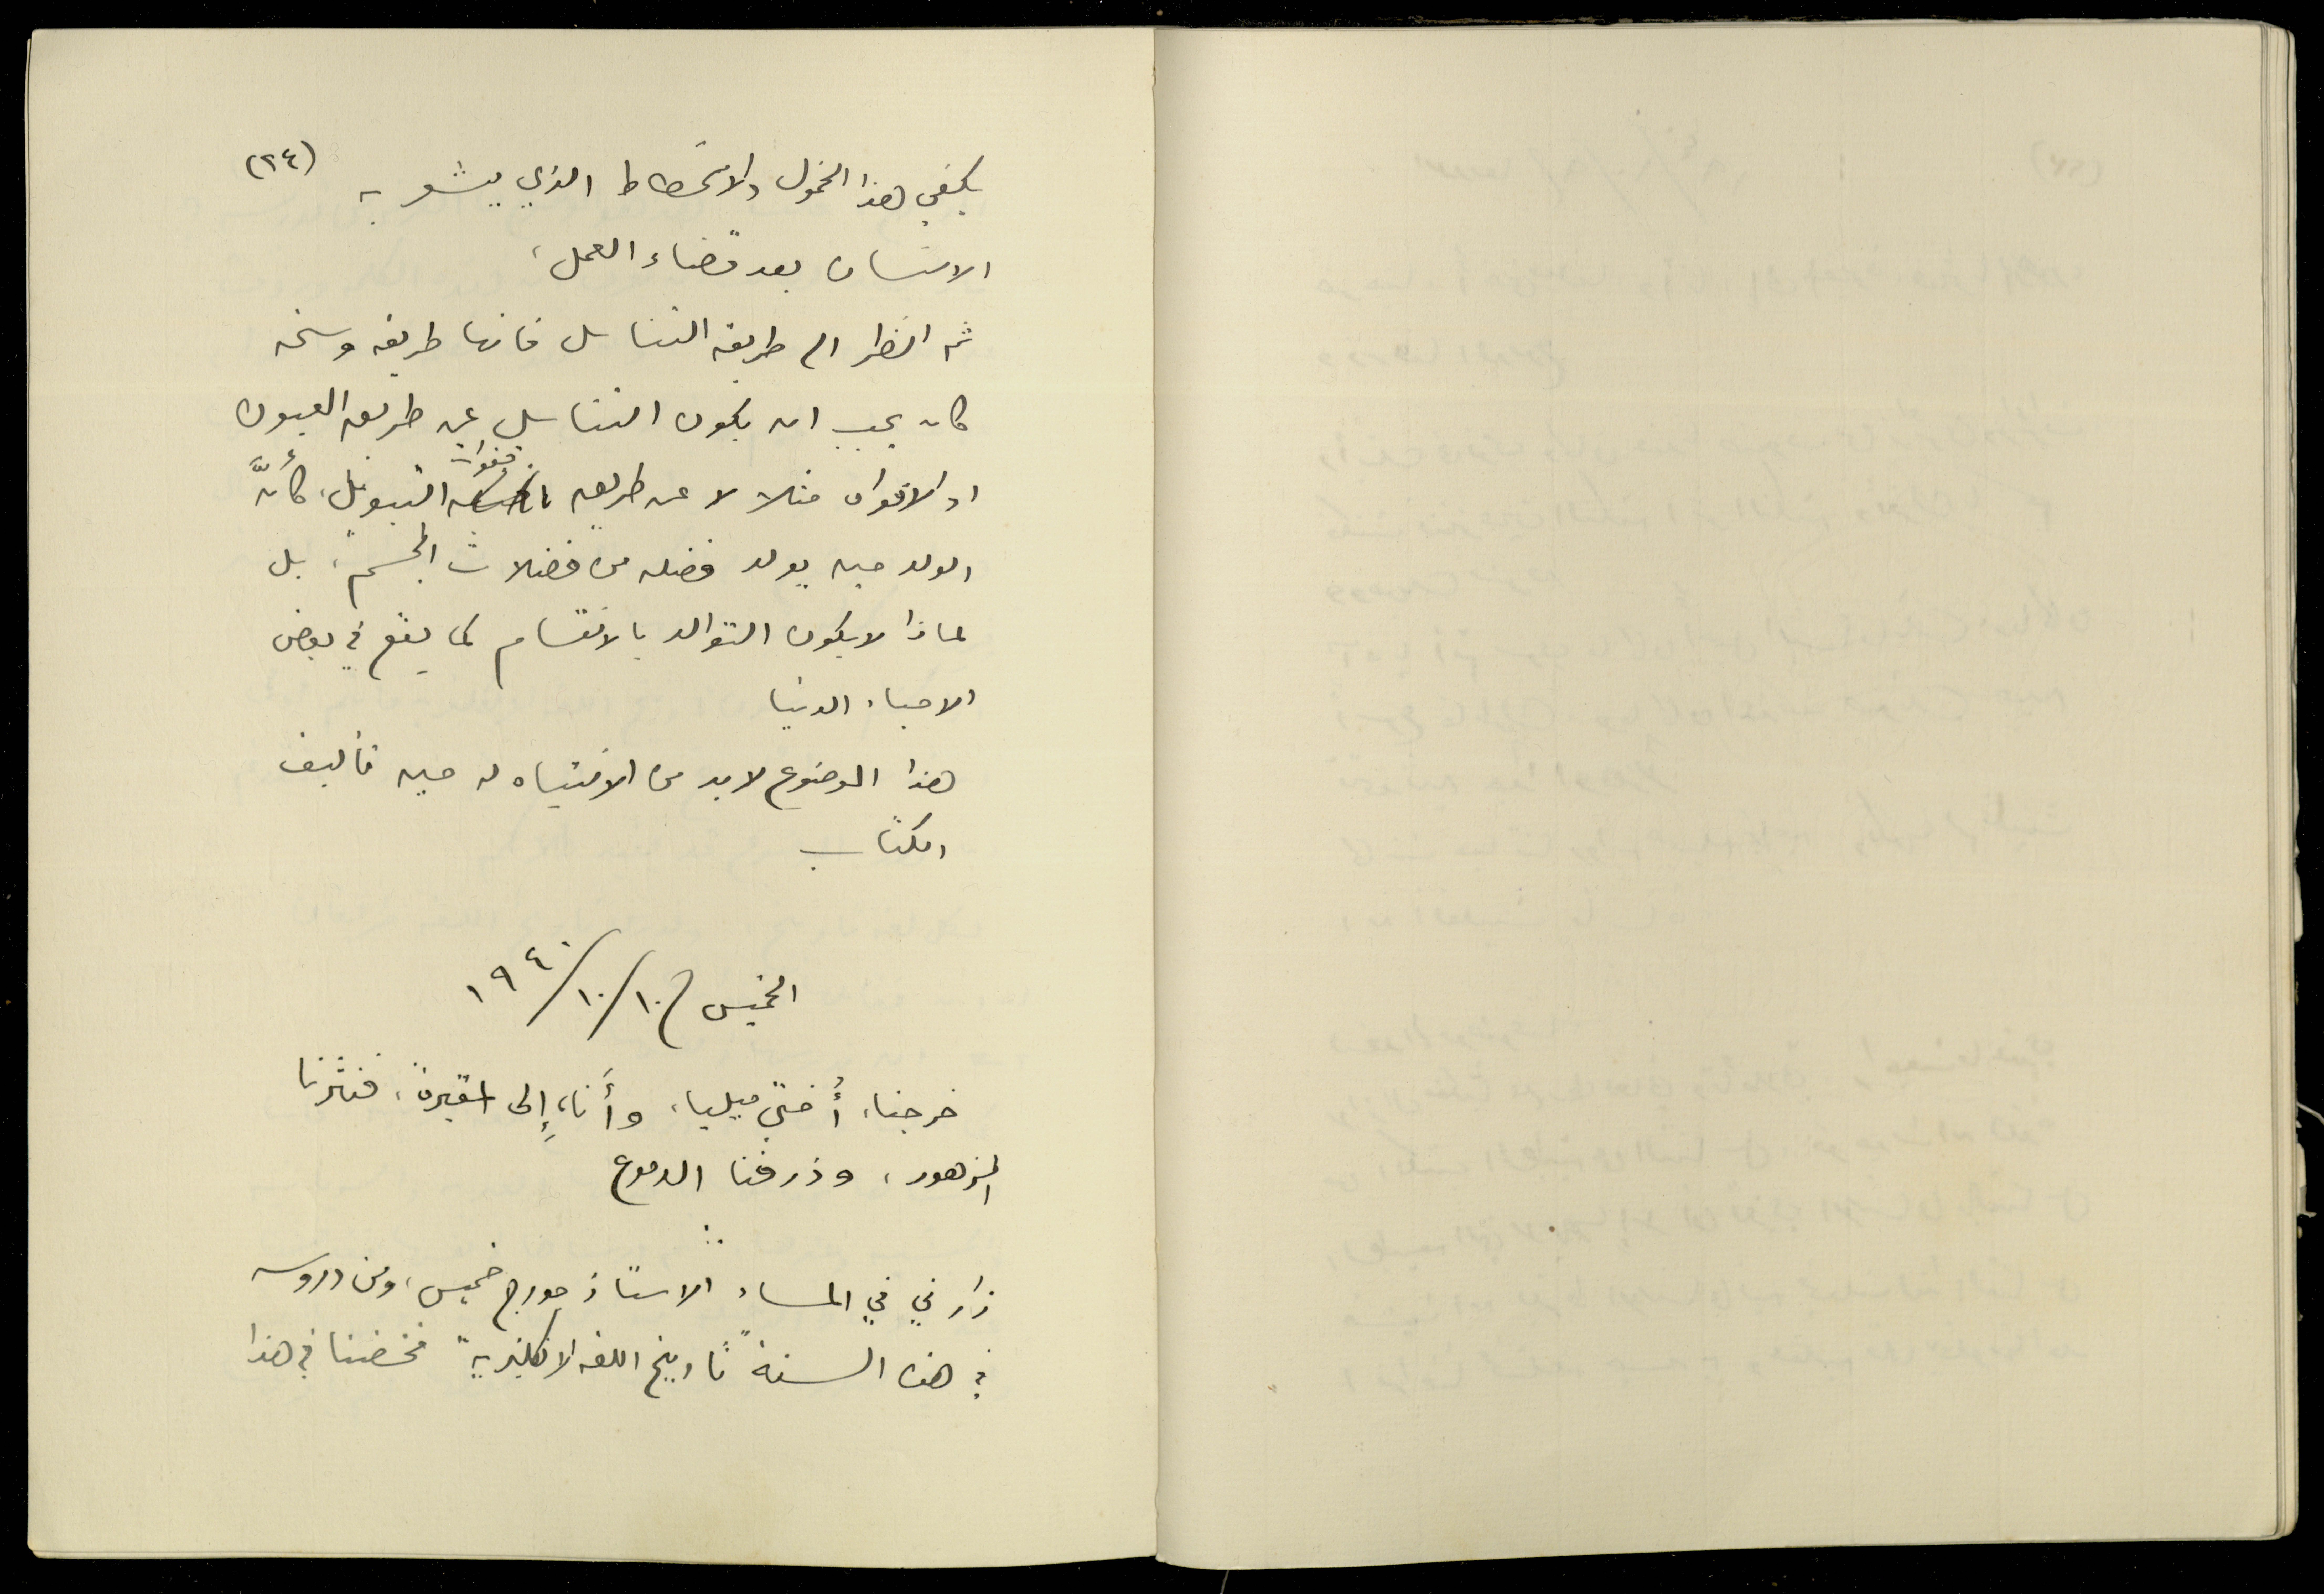 (٢٤)
يكفي هذا الخمول والانحطاط الذي يشعر به
الانسان بعد قضاء العمل،
ثم انظر الى طريقة التناسل فانها طريقة وسخه
كان يجب ان يكون التناسل عن طريق العيون
او الافواه مثلا لا عن طريق قنوات التبويل، كأنَّ
الولد حين يولد فضله من فضلات الجسم، بل
لماذا لا يكون التوالد بالانقسام كما يقع في بعض
الاحياء الدنيا
هذا الموضوع لا بد من الانتباه له حين تأليف
الكتاب
الخميس ١٠/١٠/١٩٤٠
خرجنا، أُختي ميليا، وأَنا، إِلى المقبرة، فنثرنا
الزهور، وذرفنا الدموع
زارني في المساء الاستاذ جورج خميس، ومن دروسه
في هذه السنة "تاريخ اللغه الانكليزية" فخضنا في هذا